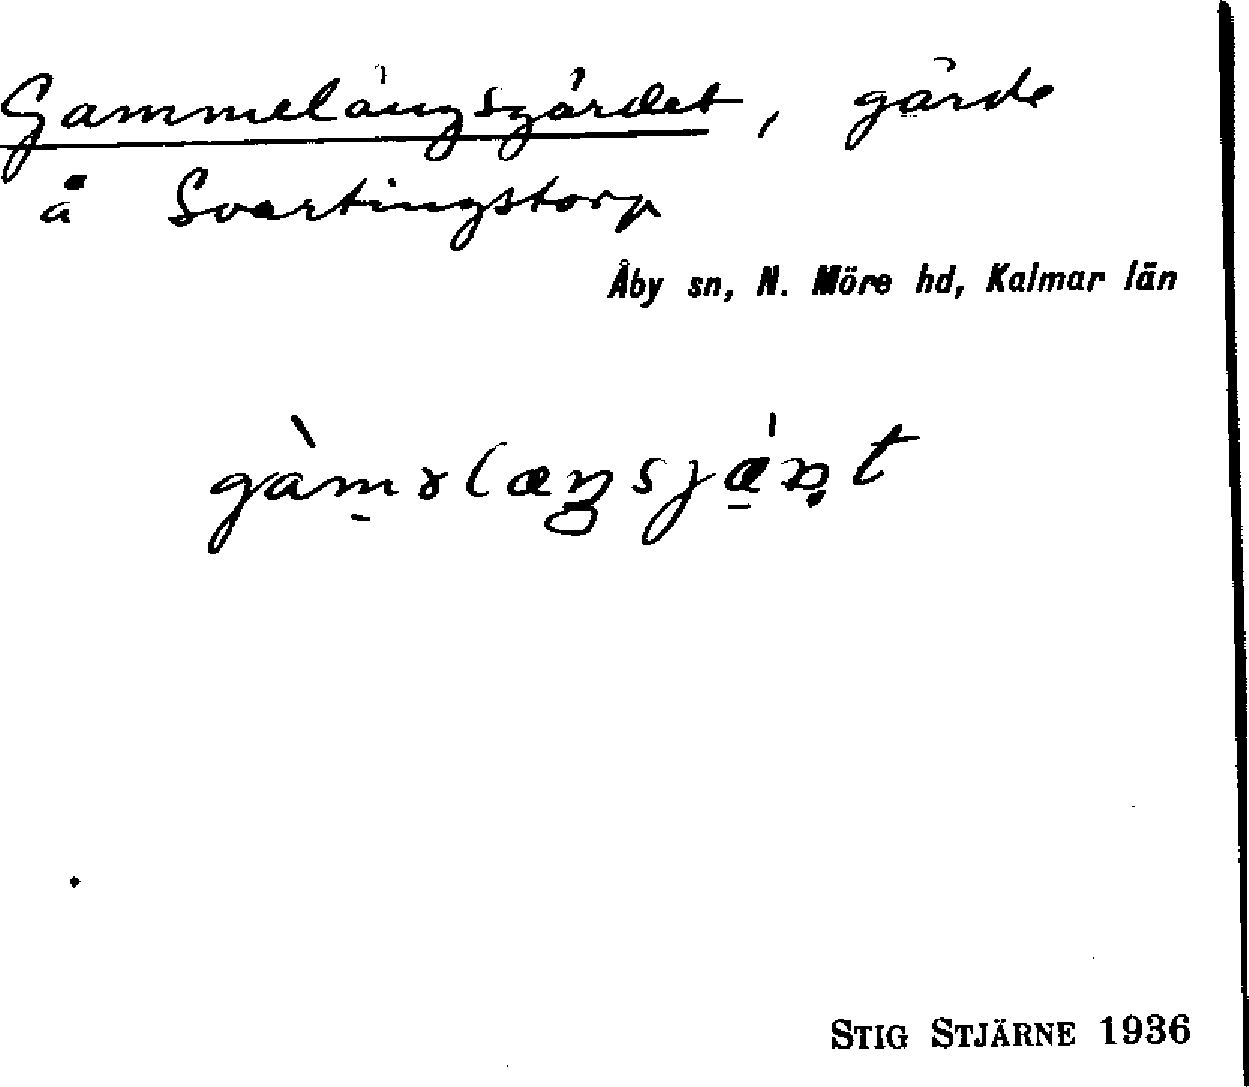 Gammelängsgärdet, gärde
å Svartingstorp
Åby sn, N. Möre hd, Kalmar län
STIG STJÄRNE 1936